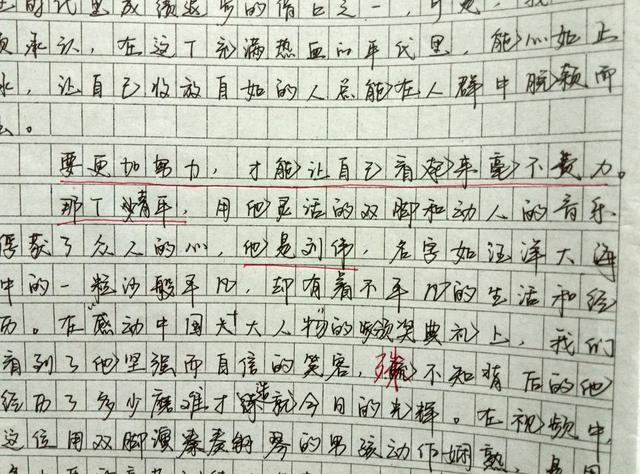 的借口之一，可见，我
须承认，在这个充满热血的年代里，能心如止
水，让自己收放自如的人总能在人群中脱颖而
出。
要更加努力，才能让自己看起来毫不费力。
那个青年，用他灵活的双脚和动人的音乐
俘获了众人的心，他是刘伟，名字如汪洋大海
中的一粒沙般平凡，却有着不平凡的生活和经
历。在"感动中国十大人物"的颁奖典礼上，我们
看到了他坚强而自信的笑容，殊不知背后的他
经历了多少磨难才造就今日的光辉。在视频中，
这位用双脚演奏钢琴的男孩动作娴熟，